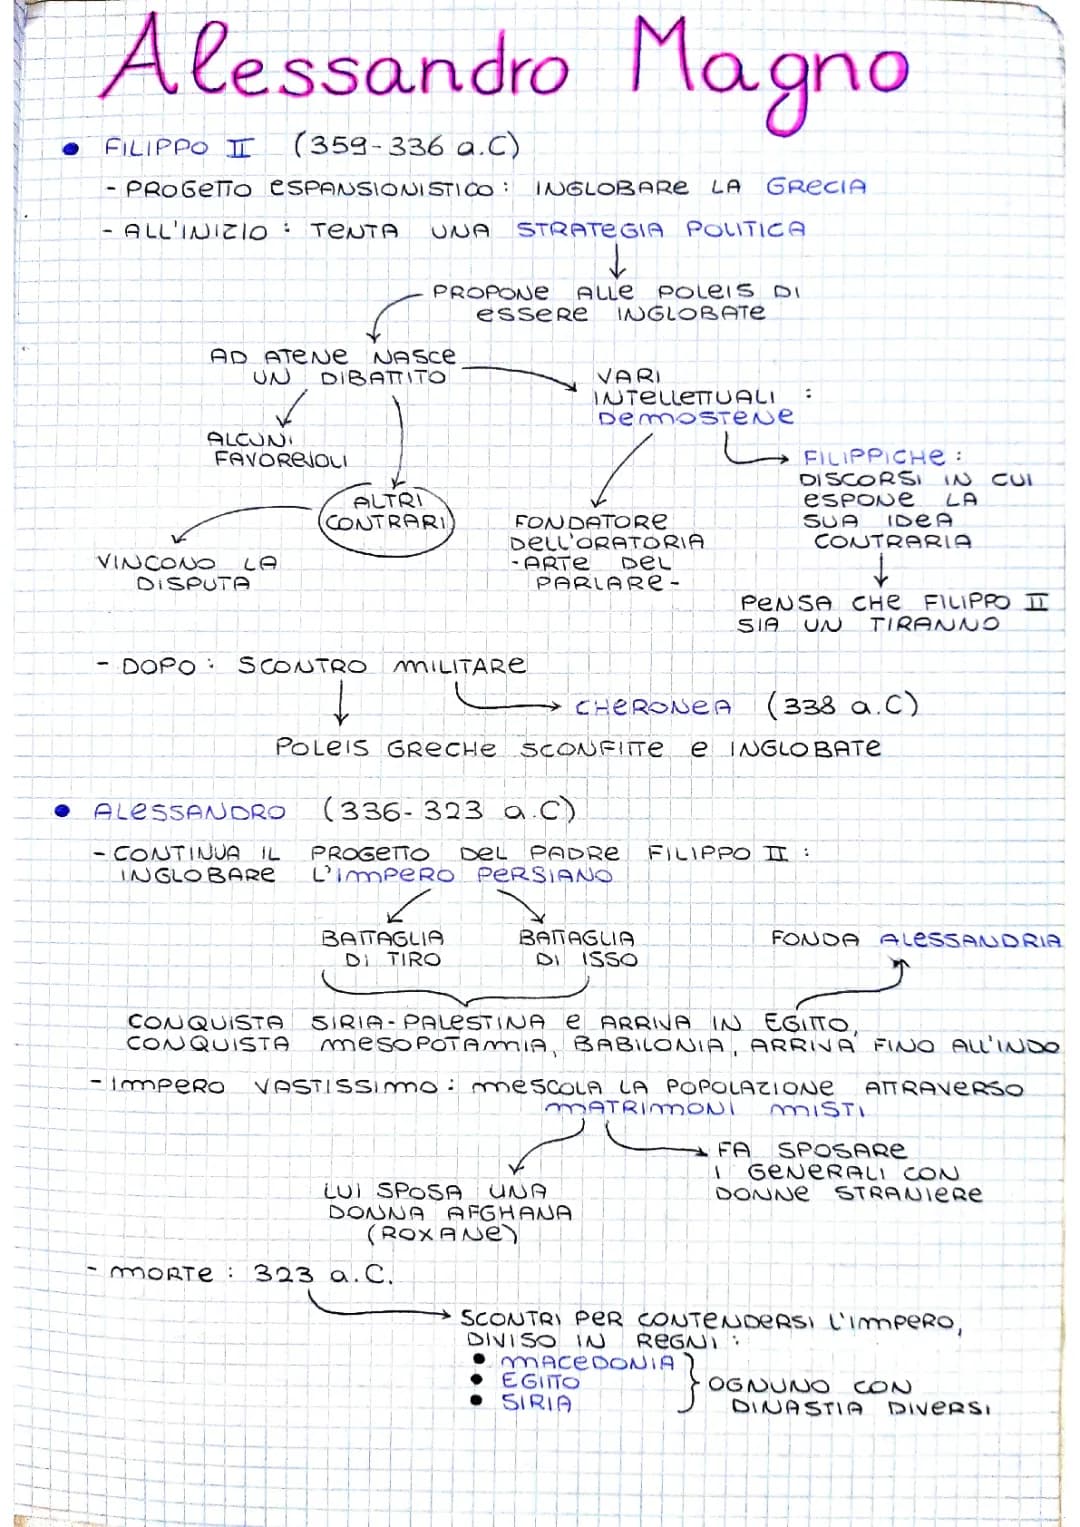 Alessandro Magno
• FILIPPO II (359-336 a.C)
- PROGETTO ESPANSIONISTICO: INGLOBARE LA GRECIA
- ALL'INIZIO: TENTA UNA STRATEGIA POLITICA
PROPONE ALLE POLEIS DI
ESSERE INGLOBATE
AD ATENE NASCE
UN DIBATTITO
VARI
INTELLETTUALI :
DEMOSTENE
ALCUNI
FAVOREVOLI
ALTRI
CONTRARI
VINCONO LA
DISPUTA
FONDATORE
DELL'ORATORIA
-ARTE DEL
PARLARE-
FILIPPICHE:
DISCORSI IN CUI
ESPONE LA
SUA IDEA
CONTRARIA
PENSA CHE FILIPPO II
SIA UN TIRANNO
- DOPO: SCONTRO MILITARE
CHERONEA (338 a.C)
POLEIS GRECHE SCONFITTE E INGLOBATE
• ALESSANDRO (336-323 a.C)
- CONTINUA IL PROGETTO DEL PADRE FILIPPO II :
INGLOBARE L'IMPERO PERSIANO
BATTAGLIA
DI TIRO
BATTAGLIA
DI ISSO
FONDA ALESSANDRIA
CONQUISTA SIRIA-PALESTINA E ARRIVA IN EGITTO,
CONQUISTA MESOPOTAMIA, BABILONIA, ARRIVA FINO ALL'INDO
- IMPERO VASTISSIMO: MESCOLA LA POPOLAZIONE ATTRAVERSO
MATRIMONI MISTI
LUI SPOSA UNA
DONNA AFGHANA
(ROXANE)
FA SPOSARE
I GENERALI CON
DONNE STRANIERE
- MORTE: 323 a.C.
SCONTRI PER CONTENDERSI L'IMPERO,
DIVISO IN REGNI:
• MACEDONIA
• EGITTO
• SIRIA
OGNUNO CON
DINASTIA DIVERSI